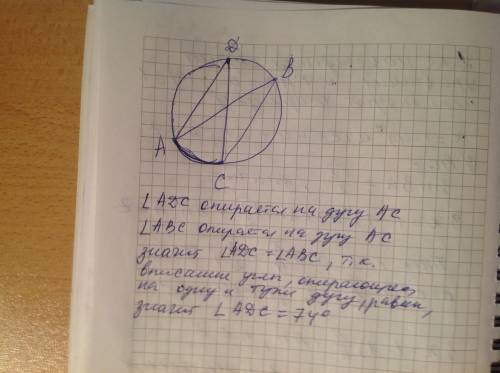 D
B
A
C
∠ADC опирается на дугу AC
∠ABC опирается на дугу AC
значит ∠ADC = ∠ABC, т.к.
вписанные углы, опирающиеся
на одну и туже дугу, равны,
значит ∠ADC = 74°